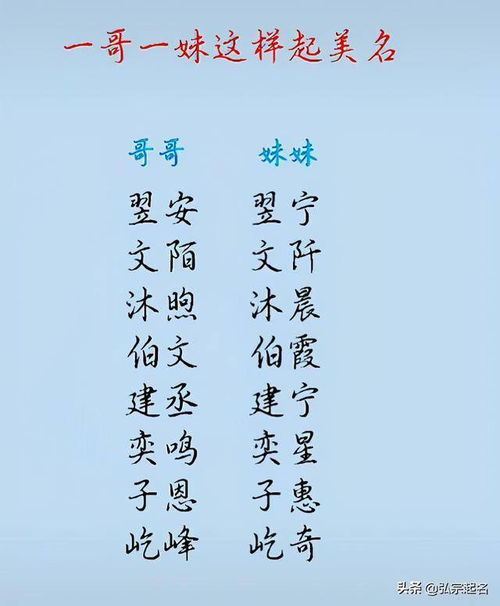 一哥一妹这样起美名
哥哥 妹妹
翌安 翌宁
文陌 文阡
沐煦 沐晨
伯文 伯霞
建丞 建宁
奕鸣 奕星
子恩 子惠
屹峰 屹奇
头条 @弘宗起名